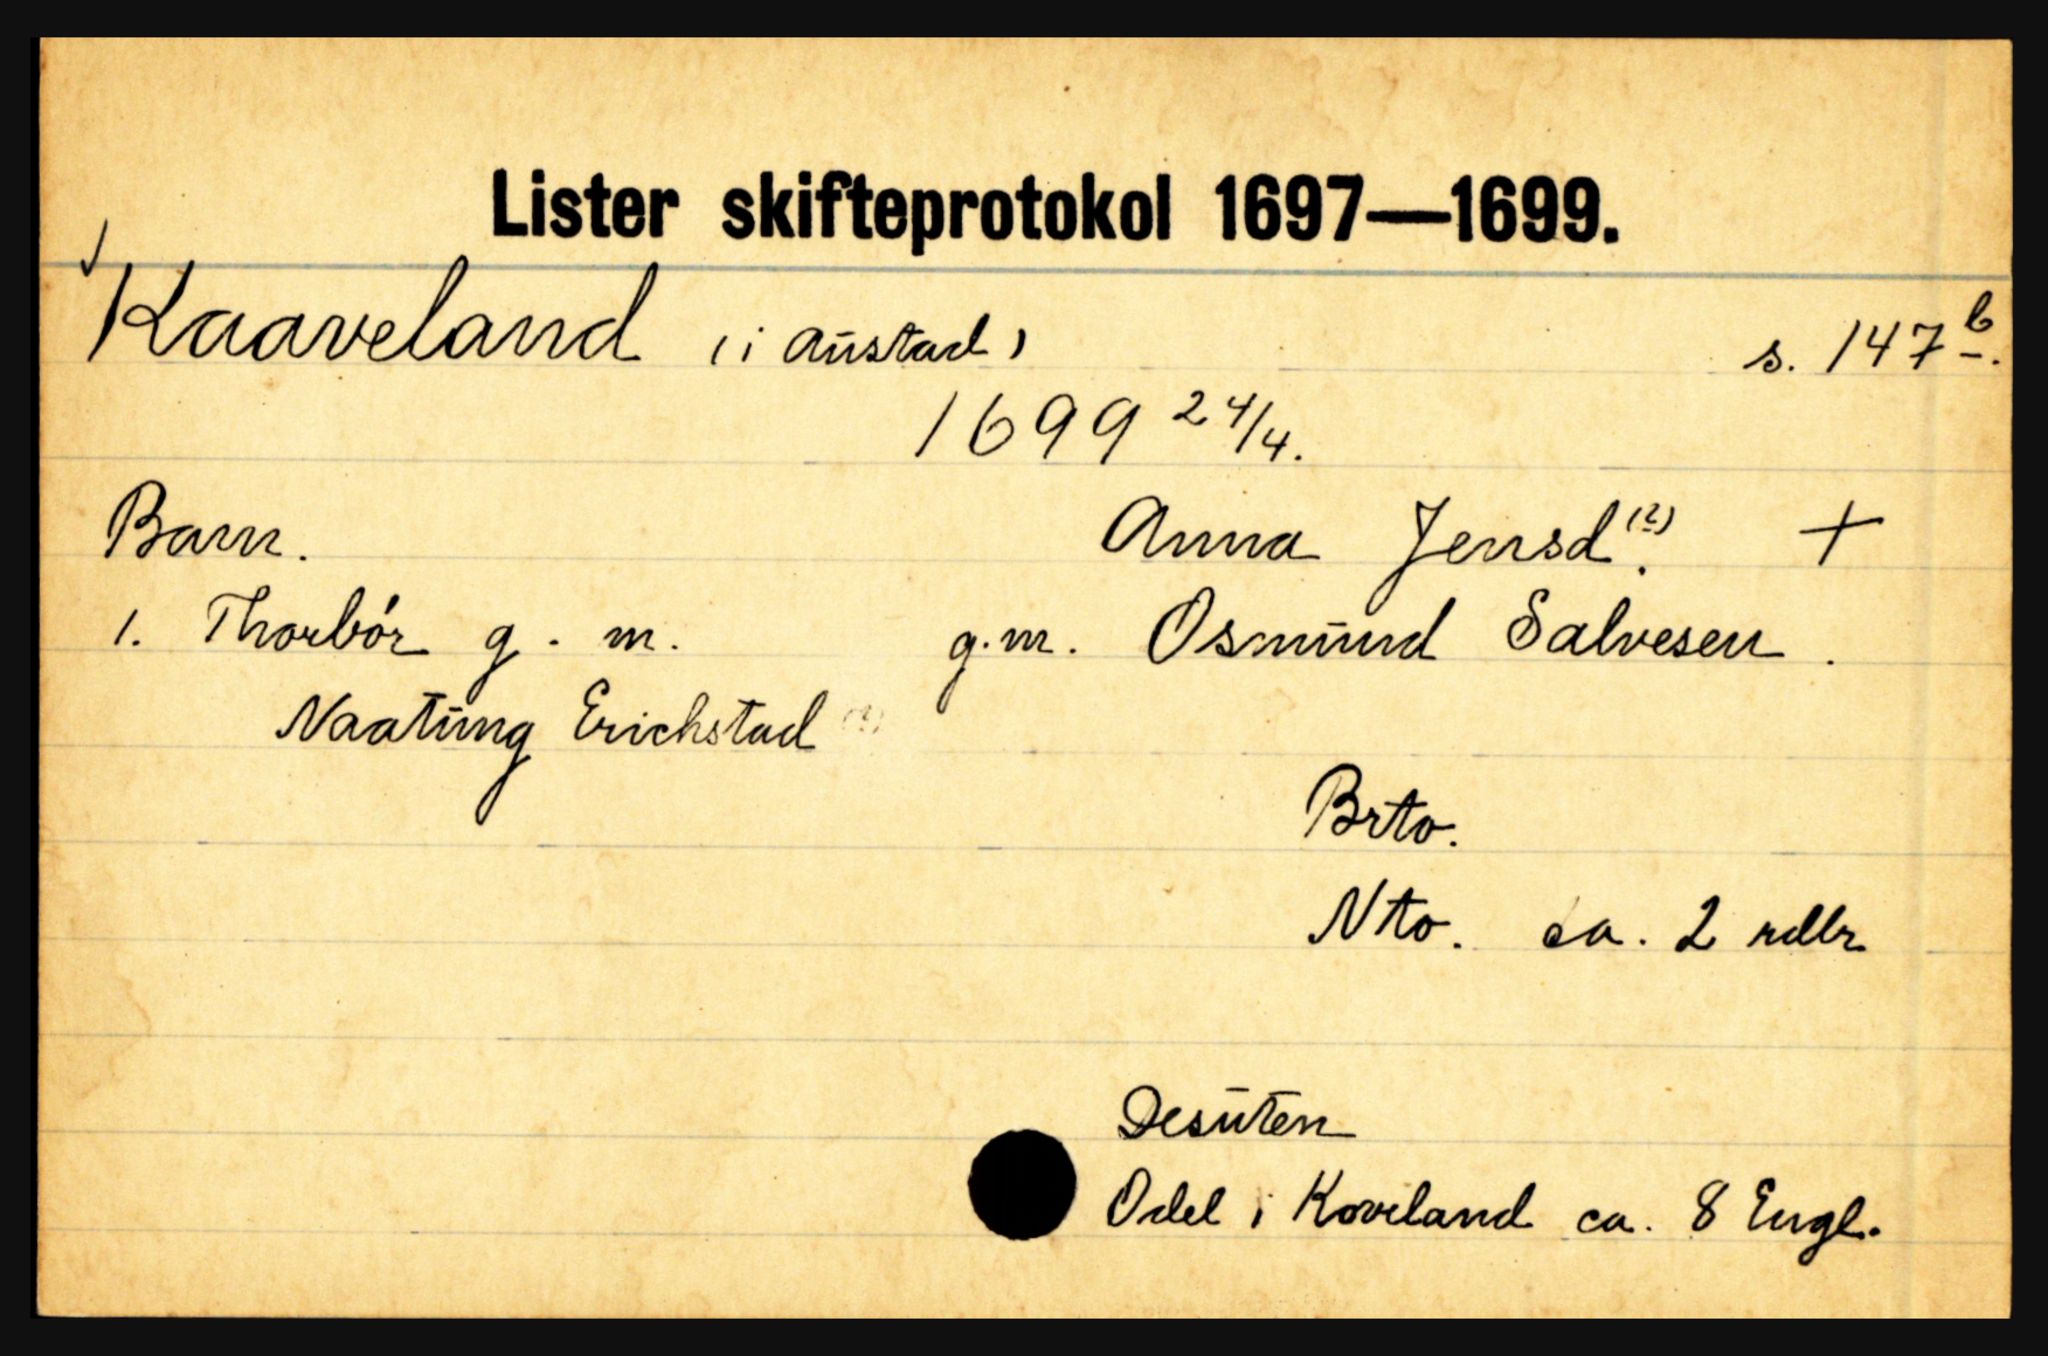 Lister skifteprotokol 1697—1699.
Kaaveland (i Austad) s. 147 b.
1699 24/4.
Barn. Anna Jensd. (?) +
1. Thorbór g. m. g.m. Osmund Salvesen.
Naatung Erichstad (?)
Brto.
Nto. ca. 2 rdlr
Desuten
Odel i Koveland ca. 8 Engl.